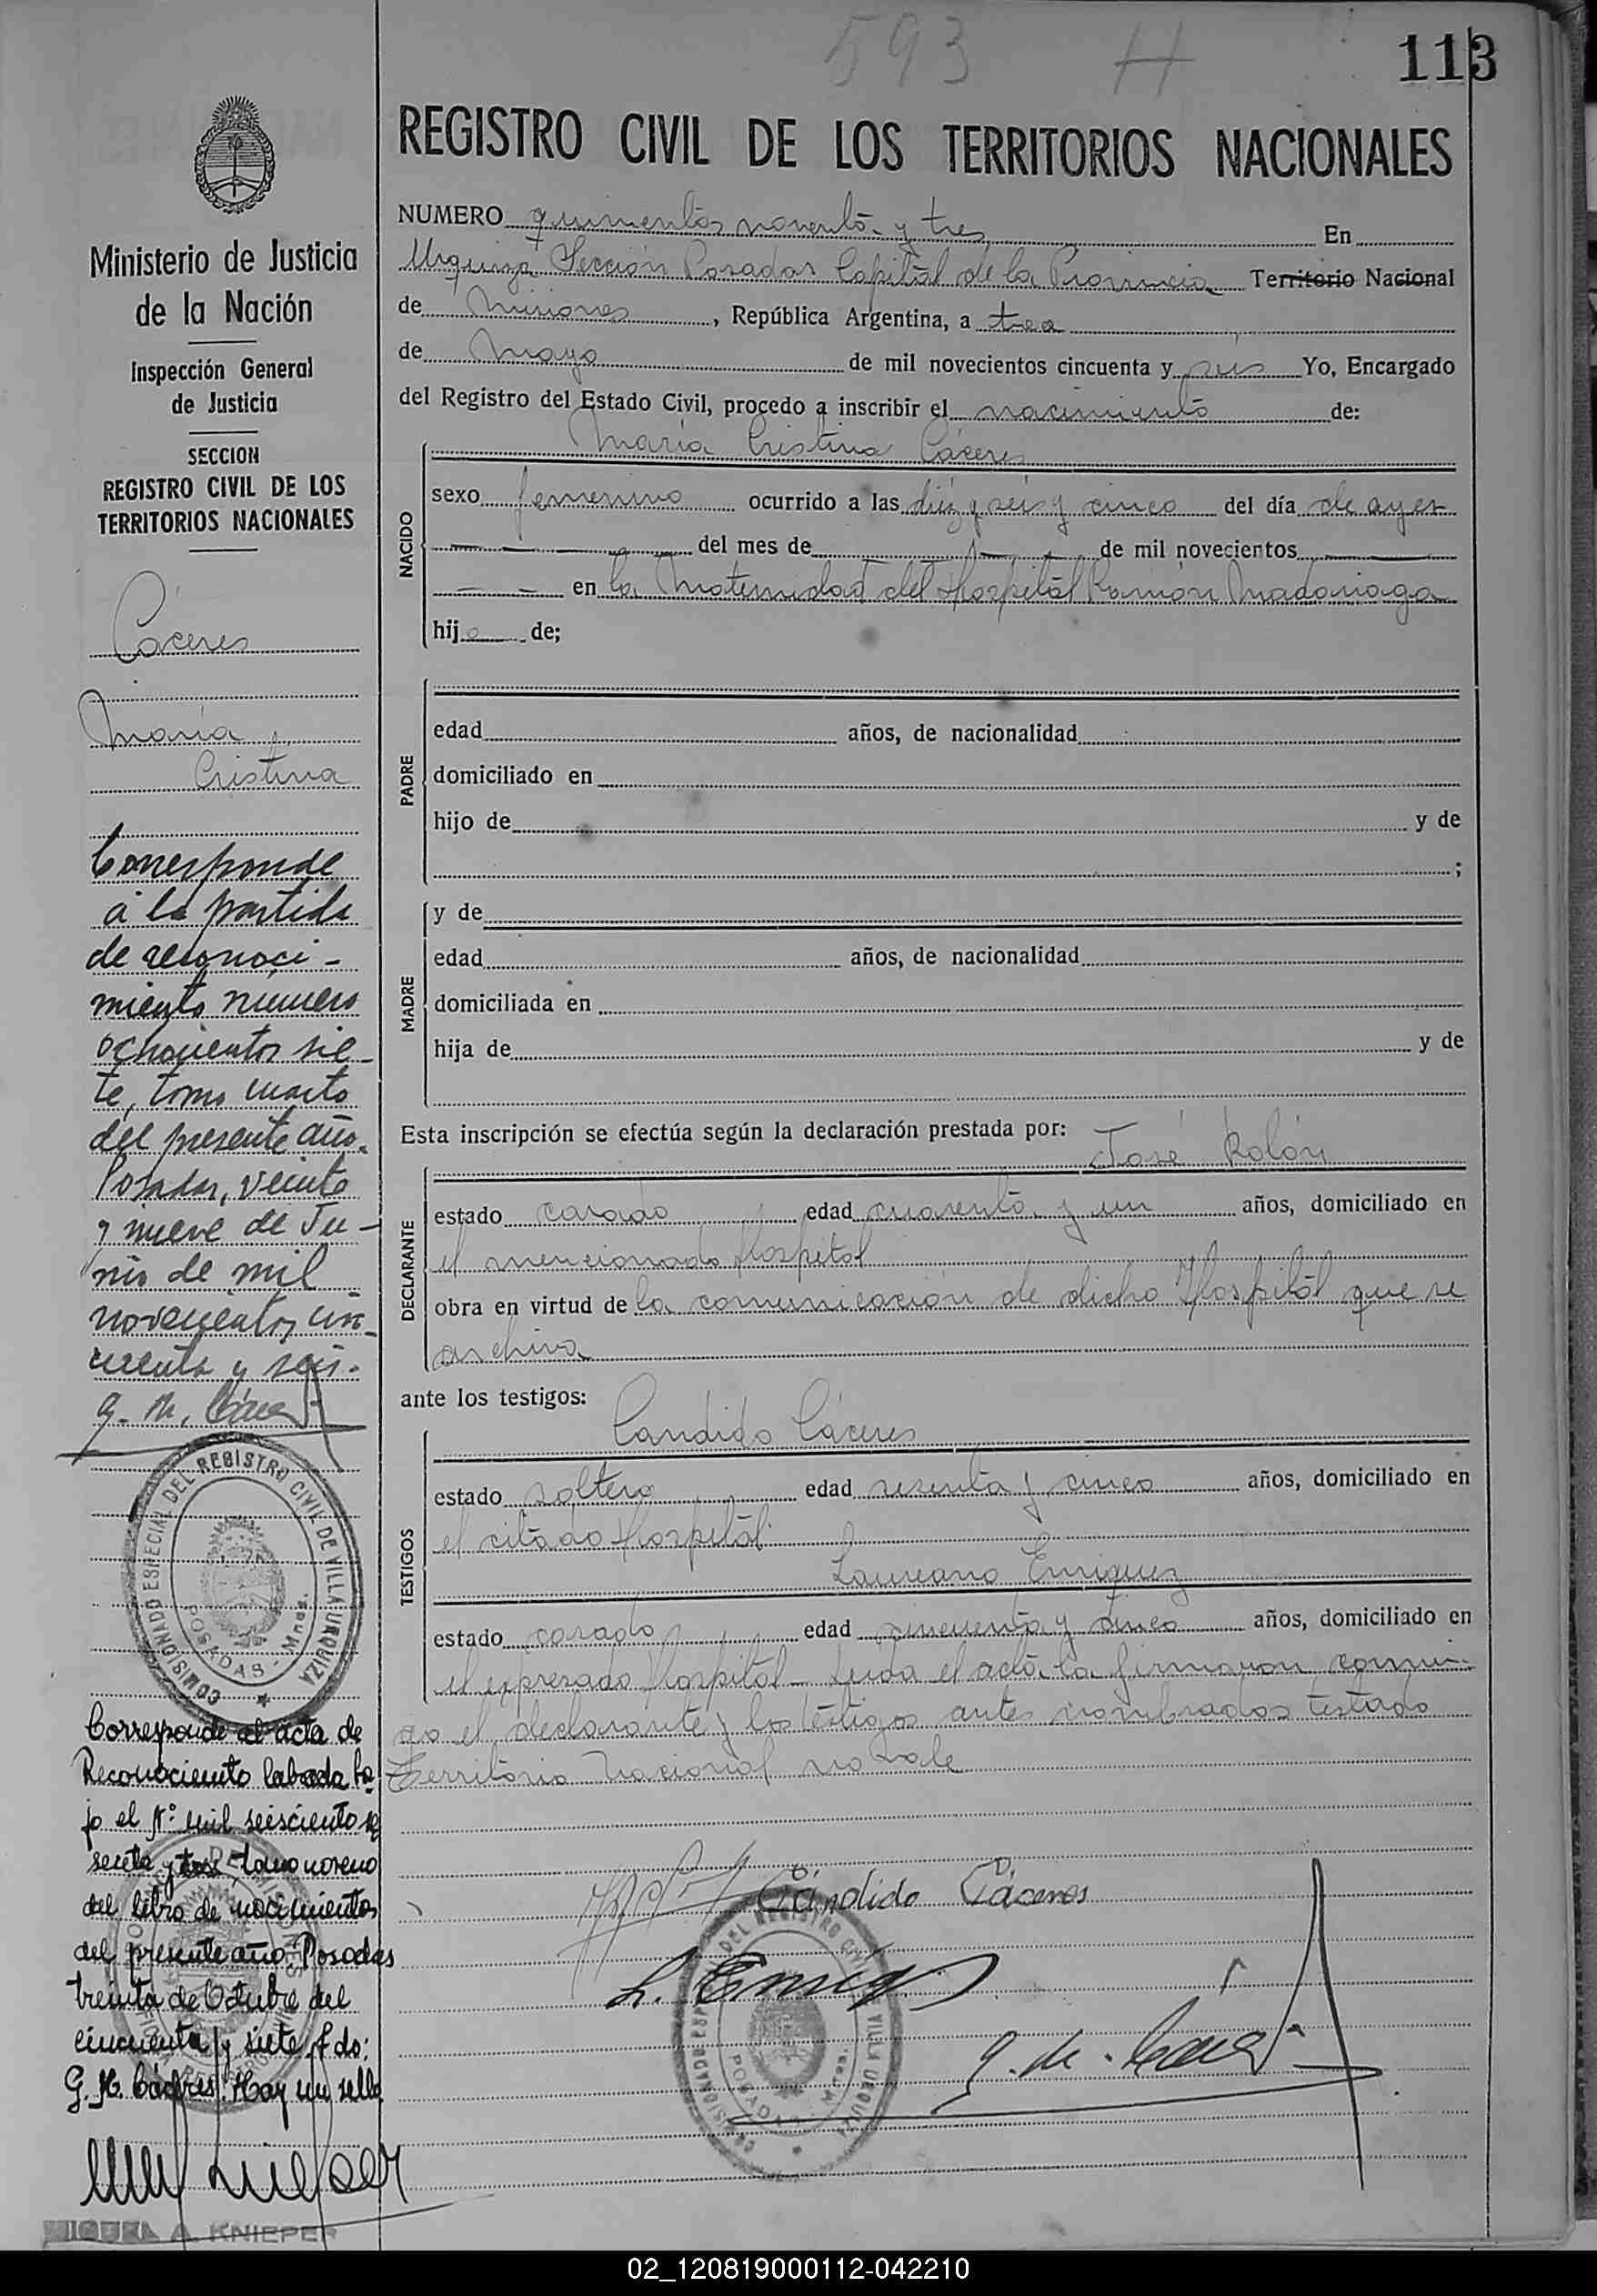 593 H
113
REGISTRO CIVIL DE LOS TERRITORIOS NACIONALES
NUMERO quinientos noventa y tres En
Urquiza Sección Posadas Capital de la Provincia Territorio Nacional
de Misiones, República Argentina, a tres
de Mayo de mil novecientos cincuenta y seis Yo, Encargado
del Registro del Estado Civil, procedo a inscribir el nacimiento de:
NACIDO
María Cristina Cáceres
sexo femenino ocurrido a las diez y seis y cinco del día de ayer
del mes de de mil novecientos
en la Maternidad del Hospital Ramón Madariaga
hija de;
PADRE
edad años, de nacionalidad
domiciliado en
hijo de y de
;
MADRE
y de
edad años, de nacionalidad
domiciliada en
hija de y de
Esta inscripción se efectúa según la declaración prestada por:
José Rolón
DECLARANTE
estado casado edad cuarenta y un años, domiciliado en
el mencionado Hospital
obra en virtud de la comunicación de dicho Hospital que se
archiva
ante los testigos:
Candido Cáceres
TESTIGOS
estado soltero edad sesenta y cinco años, domiciliado en
el citado Hospital
Laureano Enriquez
estado casado edad cincuenta y cinco años, domiciliado en
el expresado Hospital - Leida el acta la firmaron conmi-
go el declarante y los testigos antes nombrados testado
Territorio Nacional no vale
Cándido Cáceres
L. Enriq
G. M. Cáceres
COMISIONADO ESPECIAL DEL REGISTRO CIVIL DE VILLA URQUIZA
POSADAS - Mnes.
Ministerio de Justicia
de la Nación
Inspección General
de Justicia
SECCION
REGISTRO CIVIL DE LOS
TERRITORIOS NACIONALES
Cáceres
María
Cristina
Corresponde
a la partida
de reconoci-
miento número
ochocientos sie-
te, tomo cuarto
del presente año.
Posadas, veinte
y nueve de Ju-
nio de mil
novecientos cin-
cuenta y seis.
G. M. Cáceres
COMISIONADO ESPECIAL DEL REGISTRO CIVIL DE VILLA URQUIZA
POSADAS - Mnes.
Corresponde al acta de
Reconocimiento labrada ba
jo el Nº mil seiscientos se
senta y tres - tomo noveno
del libro de nacimientos
del presente año Posadas
treinta de Octubre del
cincuenta y siete. Fdo:
G. M. Cáceres. Hay un sello
MIGUEL A. KNIEPER
02_120819000112-042210